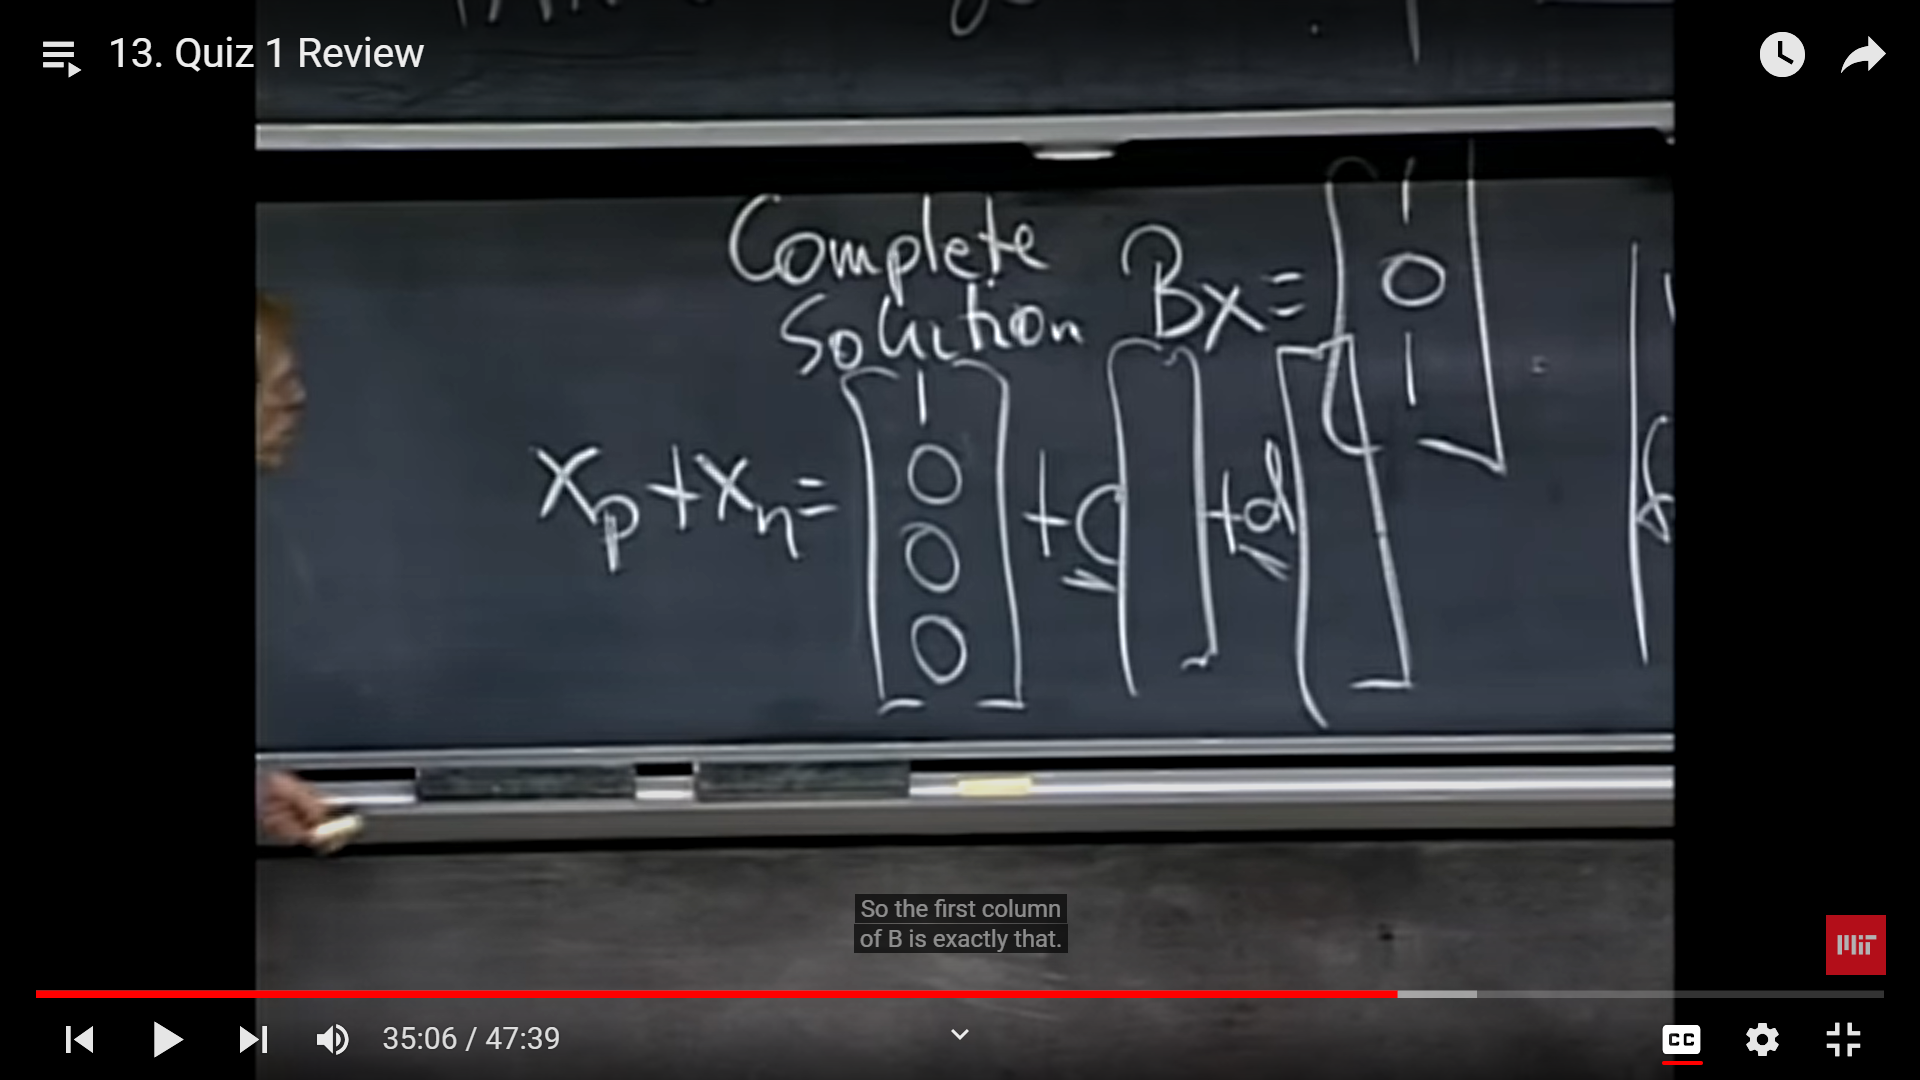 13. Quiz 1 Review
Complete
Solution Bx = [1 0 1]
xp + xn = [1 0 0 0] + c [ ] + d [ ]
So the first column
of B is exactly that.
MIT
35:06 / 47:39
CC